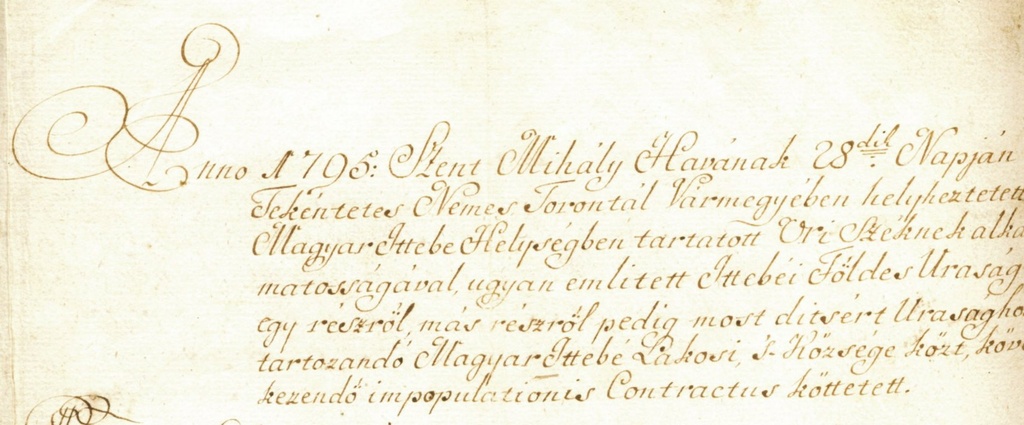 Anno 1795: Szent Mihály Havának 28dik Napján
Tekéntetes Nemes Torontál Vármegyében helyheztetett
Magyar Ittebe Helységben tartatott Uri Széknek alka
matosságával, ugyan emlitett Ittebéi Földes Uraság
egy részről, más részről pedig most ditsért Urasághoz
tartozandó Magyar Ittebé Lakosi, 's Községe közt, köve
kezendő impopulationis Contractus köttetett.